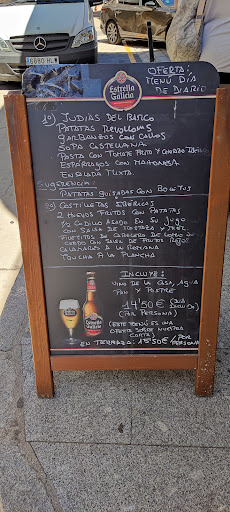 Estrella
Galicia
OFERTA:
MENU DIA
DE DIARIO
1º) JUDIAS DEL BARCO
PATATAS REVOLCONAS
GARBANZOS CON CALLOS
SOPA CASTELLANA
PASTA CON TOMATE FRITO Y CHORIZO
ESPÁRRAGOS CON MAHONESA
ENSALADA MIXTA
SUGERENCIA:
PATATAS GUISADAS CON BOLETUS
2º) COSTILLITAS IBÉRICAS
2 HUEVOS FRITOS CON PATATAS
1/2 CODILLO ASADO EN SU JUGO
CON SALSA DE MOSTAZA Y MIEL
FILETITOS DE CABECERA DE LOMO DE
CERDO CON SALSA DE FRUTOS ROJOS
CALAMARES A LA ROMANA
TRUCHA A LA PLANCHA
INCLUYE:
VINO DE LA CASA, AGUA
PAN Y POSTRE
14'50€ (IVA
INCLUIDO)
(POR PERSONA)
(ESTE MENÚ ES UNA
OFERTA SOBRE NUESTRA
CARTA)
EN TERRAZA: 15'50€/POR
PERSONA